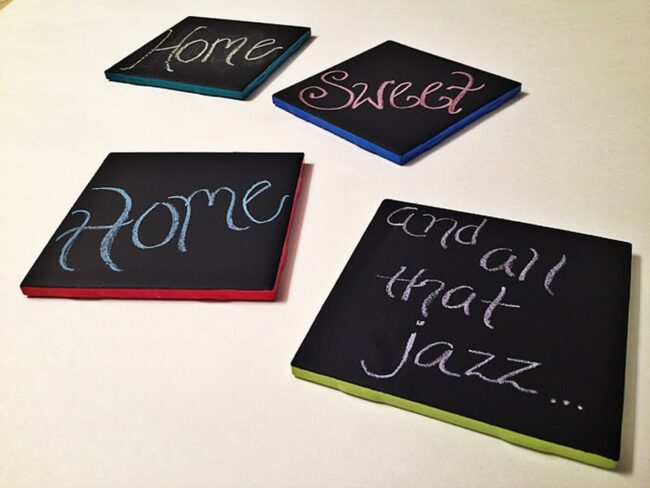 Home
Sweet
Home
and all
that
jazz...